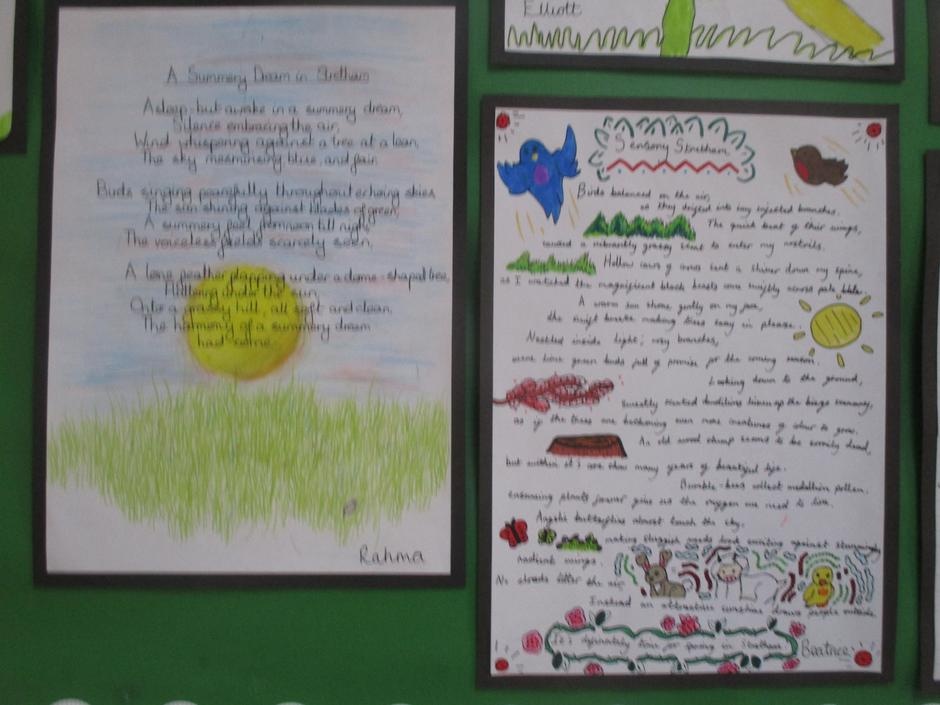 Elliott
A Summery Dream in Stretham
Asleep but awake in a summery dream,
Silence embracing the air,
Wind whispering against a tree at a lean,
The sky mesmirising blue, and fair.
Birds singing peacefully throughout echoing skies
The sun shining against blades of green,
A summery feel from noon till night
The voiceless fields scarcely seen,
A lone feather flapping under a dome-shaped tree,
under the sun,
Onto a grassy hill, all soft and clean,
The harmony of a summery dream
had come.
Rahma
Sensory Stretham
Birds balanced on the air,
as they drifted into my branches.
The quiet beat of their wings,
a vibrantly grassy scent to enter my nostrils.
Hollow caws of crows sent a shiver down my spine,
as I watched the magnificent black beasts swiftly across pale
A warm sun shone gently on my face,
the swift breeze making trees sway in
Nestled inside light, airy branches,
were green buds full of promise for the coming season.
Looking down to the ground,
dandelions the
as if the trees are beckoning even more creations of colour to grow.
An old wood stump seems to be dead,
but within it's core show many years of beautiful life.
Bumble-bees collect pollen,
plants give us the oxygen we need to live.
Angelic butterflies almost touch the sky,
making sluggish look against
radiant wings.
No clouds litter the air,
Instead an attractive sunshine draws people outside.
It's definately time for spring in Stretham.
Beatrice